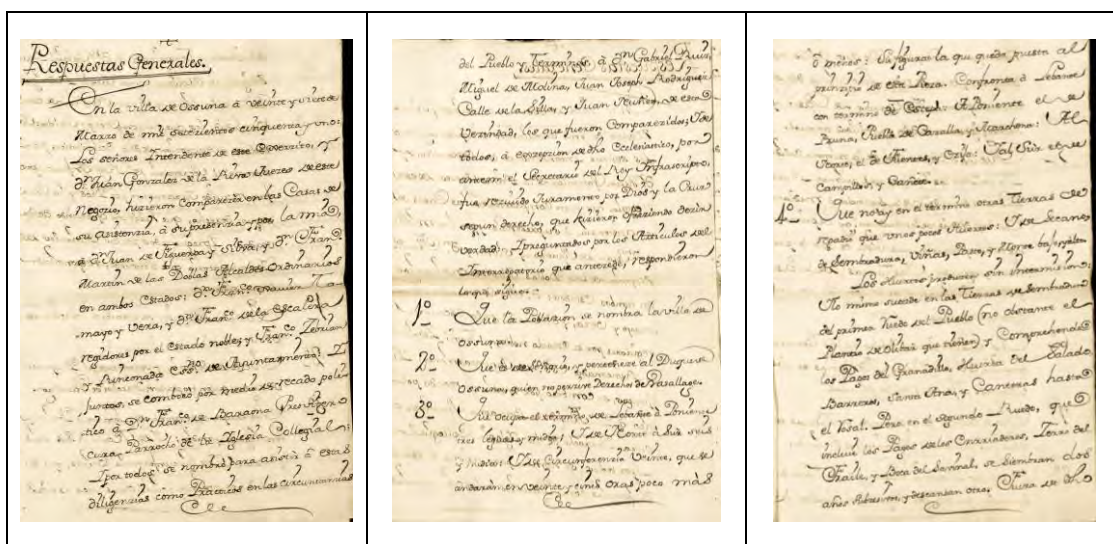 Respuestas Generales.
En la villa de Ossuna á veinte y siete de
Marzo de mil setecientos cinquenta y uno:
Los señores Intendente de este Exercito, y
dn Juán Gonzalez de la Riva Juezes de este
Negocio, hicieron comparecer en las Casas de
su asistenzia, á su presenzia, y por la mía,
á dn Juan de Figueroa y Silva, y dn Franco
Martin de las Alcaldes ordinarios
en ambos Estados; dn Franco Ta=
=mayo y Vera, y dn Franco de la Escalera
regidores por el estado noble; y Franco
de Ayuntamiento: I
juntos, se combocó por medio de recado polí=
tico á Dn Franco de Baraona Presvitero
cura, Párrocho de la Iglesia Collegial:
I por todos se nombró para asistir á estas
diligenzias como Prácticos en las circunstanzias
del Pueblo y Termino, á dn Gabriel Ruiz,
Miguel de Molina, Juan Joseph Rodriguez
Calle de la y Juan Nuñez, de esta
Vezindad, los que fueron Comparezidos; I de
todos, á excepzion de dho Eclesiástico, por
antemi el Secretario del Rey Infrascripto,
fue rezivido Juramento por Dios y la Cruz
segun derecho, que hizieron ofreziendo dezir
verdad; I preguntados por los Articulos del
Interrogatorio que antecede, respondieron
lo que sigue:
1º Que la Poblazion se nombra la villa de
Ossuna
2º Que es de y perteneze al Duque de
Ossuna, quien percive Derecho de Vasallage.
3º Que ocupa el termino, de Lebante á Poniente
tres leguas y media; I de Norte á Sur seis
y media: I de Circunferenzia Veinte, que se
andarán en veinte y seis oras poco más
ó menos: Su figura la que queda puesta al
prinzipio de esta Pieza. Confronta á Lebante
con termino de A Poniente el de
Pruna, Puebla de Cazalla, y Marchena: Al
Norte, el de Fuentes, y Ezija: I al Sur el de
Campillos y Cañete.
4º Que no ay en el termino otras Tierras de
regadio que unos pocos Huertos: I de Secano
de Sembradura, Viñas, Pasto, y Monte bajo, y alto.
Los Huertos producen sin intermision:
Lo mismo suzede en las Tierras de Sembradura
del primer Ruedo del Pueblo (no obstante el
Plantio de olibar que tienen) y Comprehende
los Pagos del Granadillo, Huerta del Salado,
Barrera, Santa Ana, y Canteras hasta
el Pero en el segundo Ruedo, que
incluie los Pagos de los del
Fraile, y Bota del se siembran dos
años y descansan otro, de dho